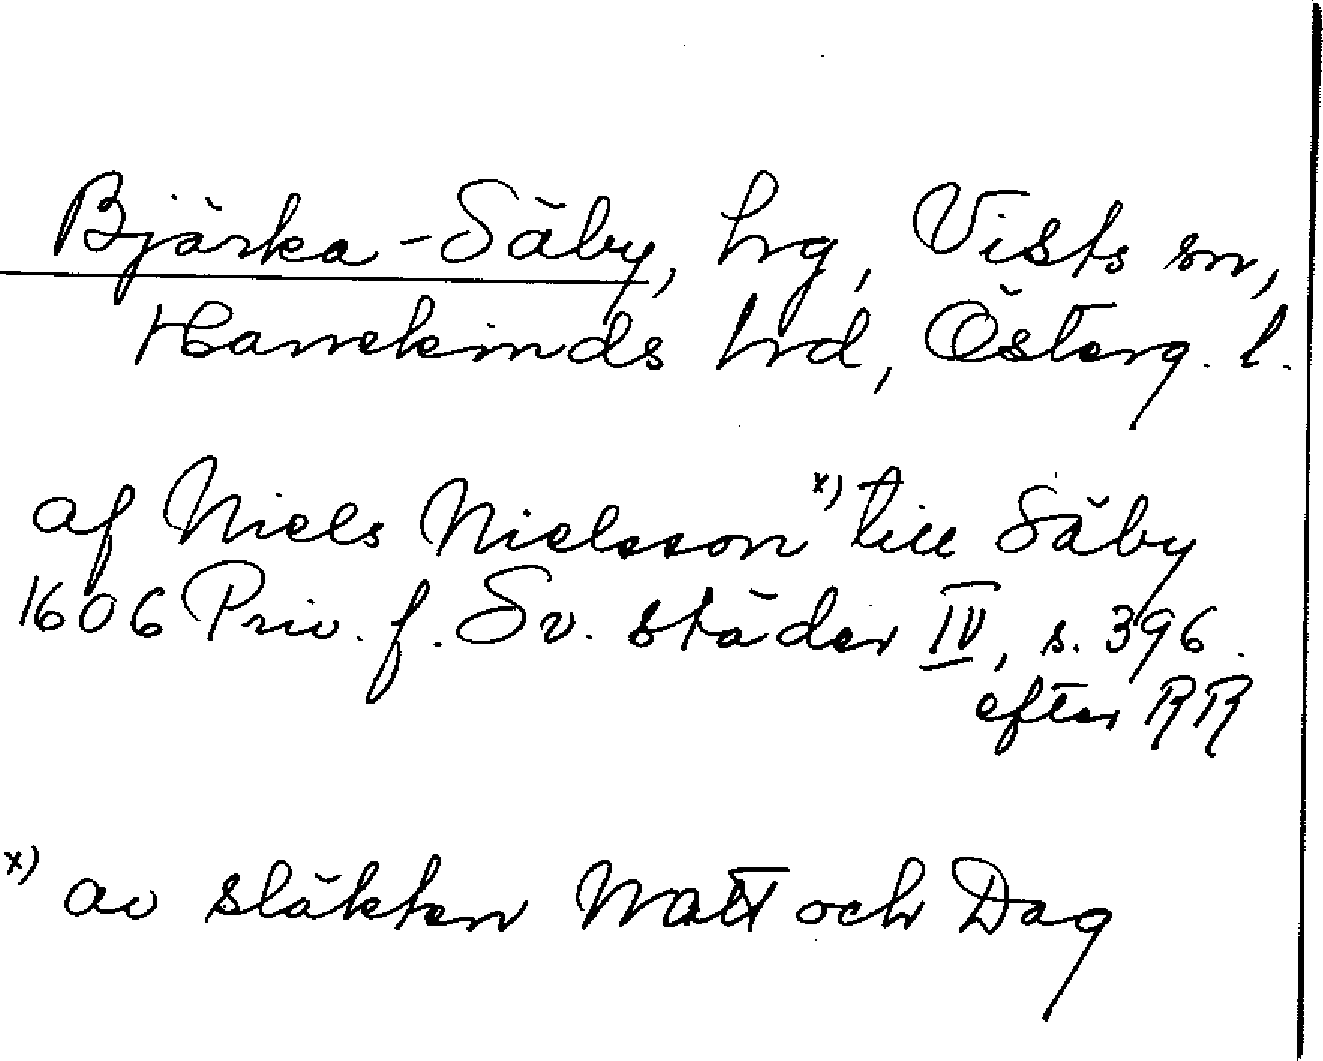 Bjärka-Säby, hrg, Vists sn,
Hanekinds hrd, Österg. l.
af Niels Nielsson x) till Säby
1606 Priv. f. Sv. städer IV, s. 396.
efter RR
x) av släkten Natt och Dag